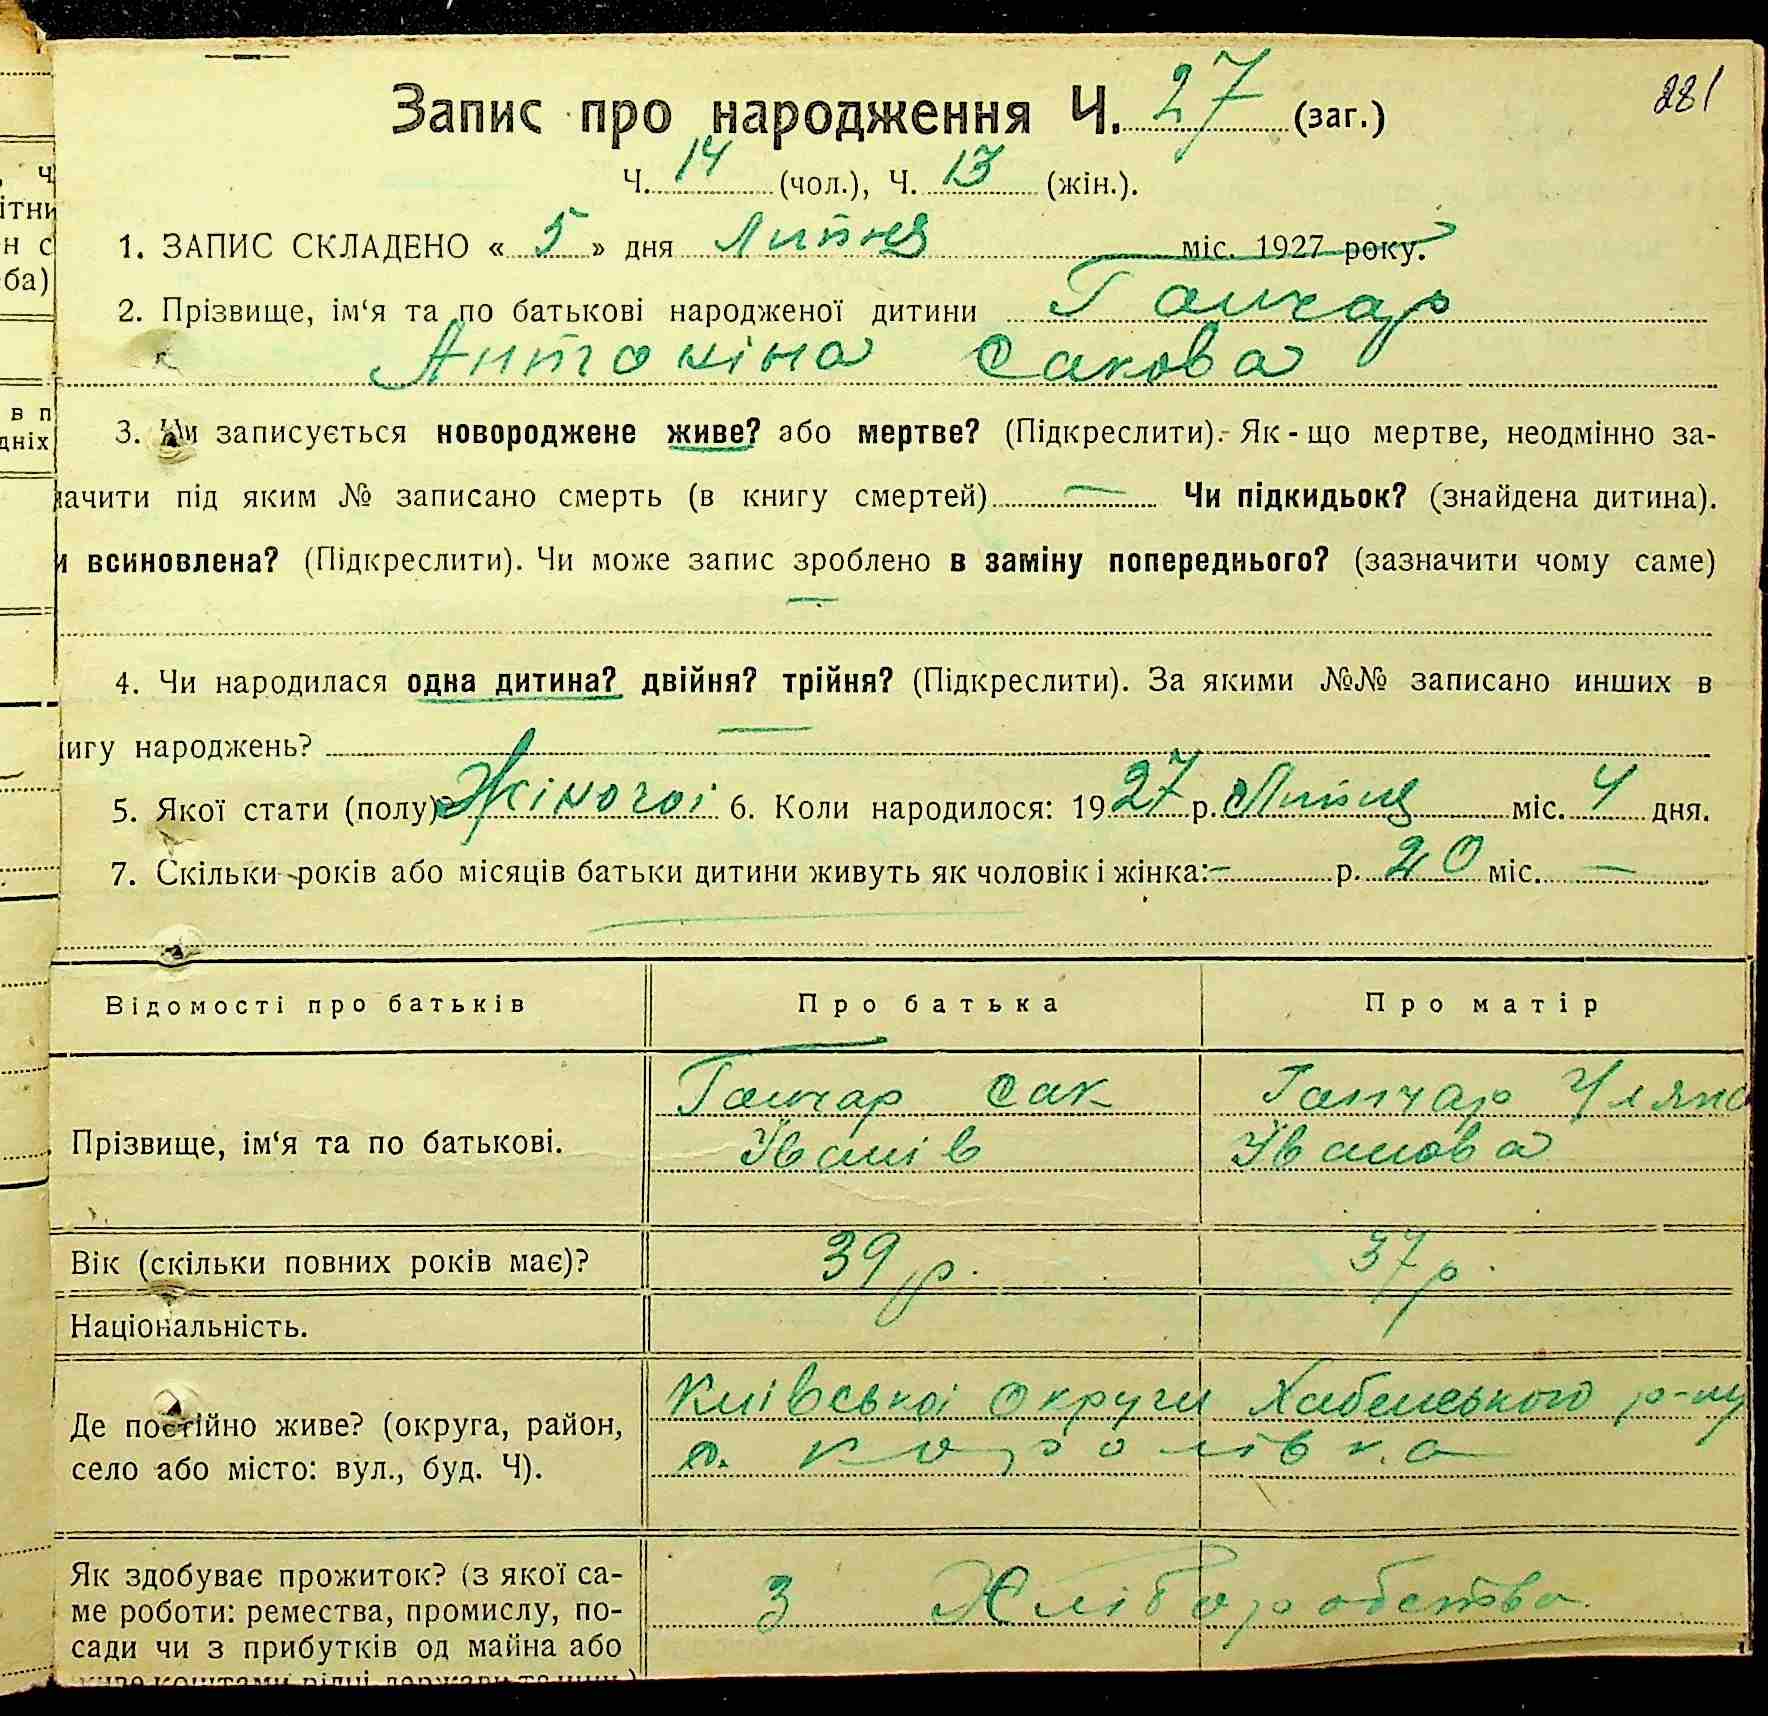 281
Запис про народження Ч. 27 (заг.)
Ч. 14 (чол.), Ч. 13 (жін.).
1. ЗАПИС СКЛАДЕНО « 5 » дня Липня міс. 1927 року.
2. Прізвище, ім‘я та по батькові народженої дитини Ганчар
Антоніна Сакова
3. Чи записується новороджене живе? або мертве? (Підкреслити). Як-що мертве, неодмінно за-
ачити під яким № записано смерть (в книгу смертей) — Чи підкидьок? (знайдена дитина).
и всиновлена? (Підкреслити). Чи може запис зроблено в заміну попереднього? (зазначити чому саме)
—
4. Чи народилася одна дитина? двійня? трійня? (Підкреслити). За якими №№ записано инших в
игу народжень? —
5. Якої стати (полу)? Жіночої 6. Коли народилося: 1927 р. Липня міс. 4 дня.
7. Скільки років або місяців батьки дитини живуть як чоловік і жінка: — р. 20 міс. —
Відомості про батьків Про батька Про матір
Прізвище, ім‘я та по батькові. Ганчар Сак Ганчар Уляна
Іванів Іванова
Вік (скільки повних років має)? 39 р. 37 р.
Національність.
Де постійно живе? (округа, район, Київської округи Хабенського р-ну
село або місто: вул., буд. Ч). с. Королівка
Як здобуває прожиток? (з якої са-
ме роботи: ремества, промислу, по- З Хліборобства
сади чи з прибутків од майна або
ч
ітни
н с
ба)
в п
дніх